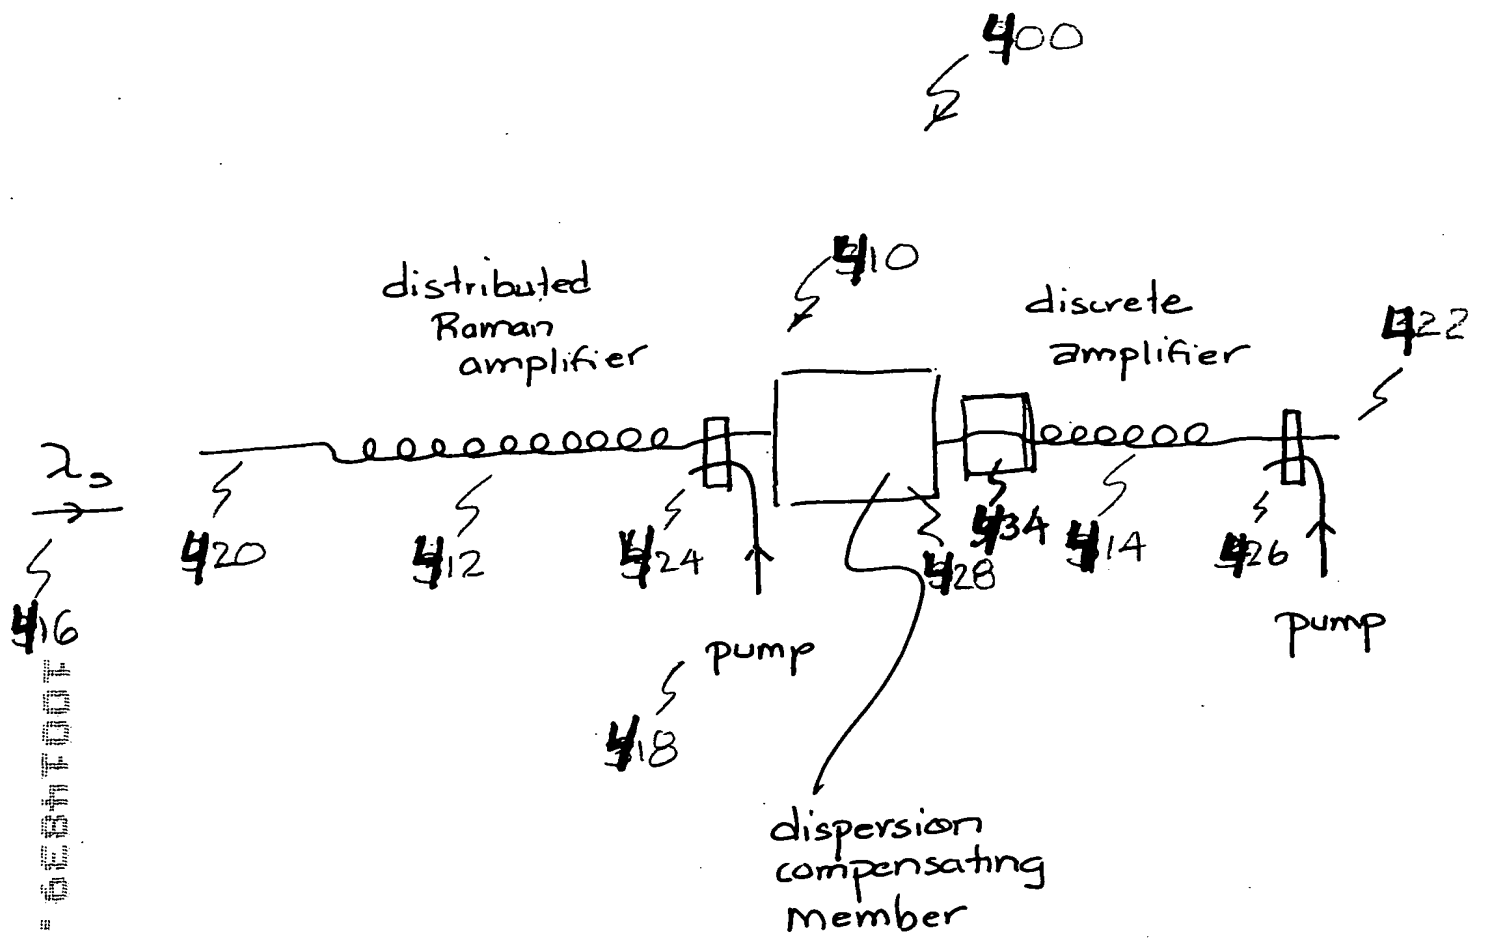 400
410
distributed
Raman
amplifier
discrete
amplifier
422
λs
420
412
424
428
434
414
426
416
pump
pump
418
dispersion
compensating
member